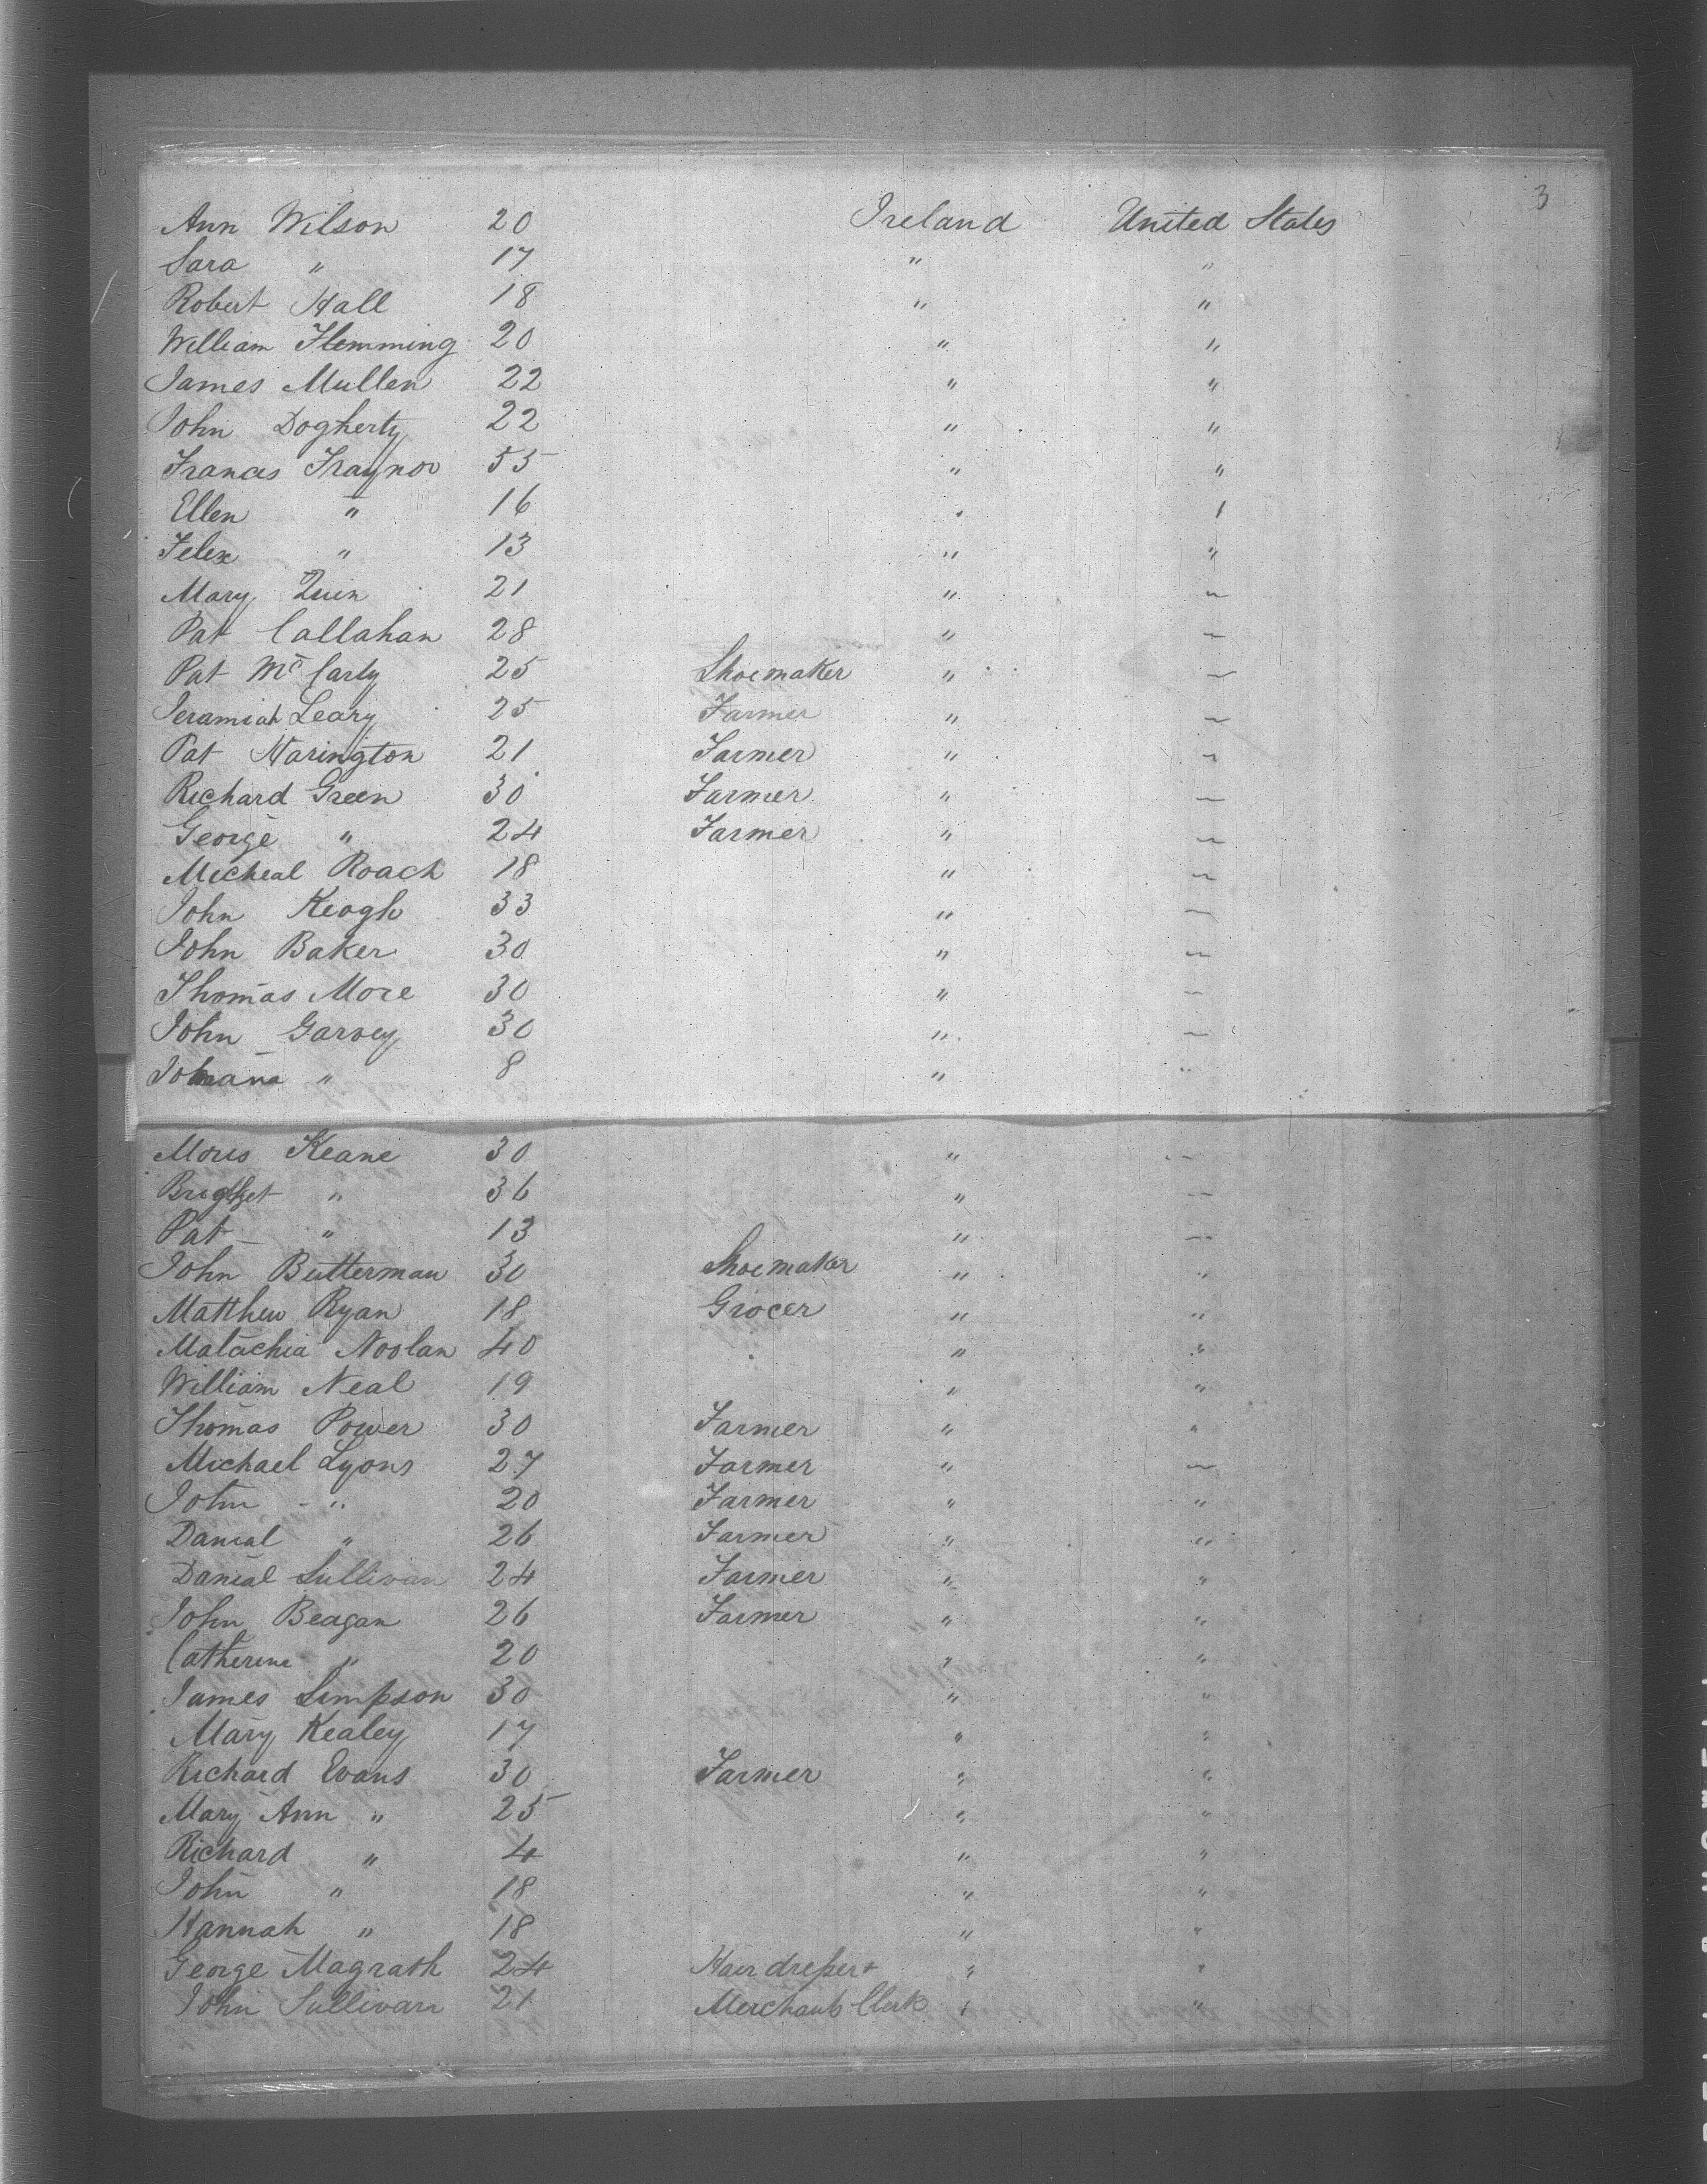 3
Ann Wilson 20 Ireland United States
Sara " 17 " "
Robert Hall 18 " "
William Flemming 20 " "
James Mullen 22 " "
John Dogherty 22 " "
Francis Traynor 55 " "
Ellen " 16 " "
Felex " 13 " "
Mary Quin 21 " "
Pat Callahan 28 " "
Pat McCarty 25 Shoemaker " "
Jeramiah Leary 25 Farmer " "
Pat Harington 21 Farmer " "
Richard Green 30 Farmer " "
George " 24 Farmer " "
Micheal Roach 18 " "
John Keogh 33 " "
John Baker 30 " "
Thomas More 30 " "
John Garvey 30 " "
" 8 " "
Moris Keane 30 " "
" 36 " "
Pat " 13 " "
John Butterman 30 Shoemaker " "
Matthew Ryan 18 Grocer " "
Malachia Noolan 40 " "
William Neal 19 " "
Thomas Power 30 Farmer " "
Michael Lyons 27 Farmer " "
John " 20 Farmer " "
Danial " 26 Farmer " "
Danial Sullivan 24 Farmer " "
John Beagan 26 Farmer " "
Catherine " 20 " "
James Simpson 30 " "
Mary Kealey 17 " "
Richard Evans 30 Farmer " "
Mary Ann " 25 " "
Richard " 4 " "
John " 18 " "
Hannah " 18 " "
George Magrath 24 Hair dresser " "
John Sullivan 21 Merchants Clerk " "